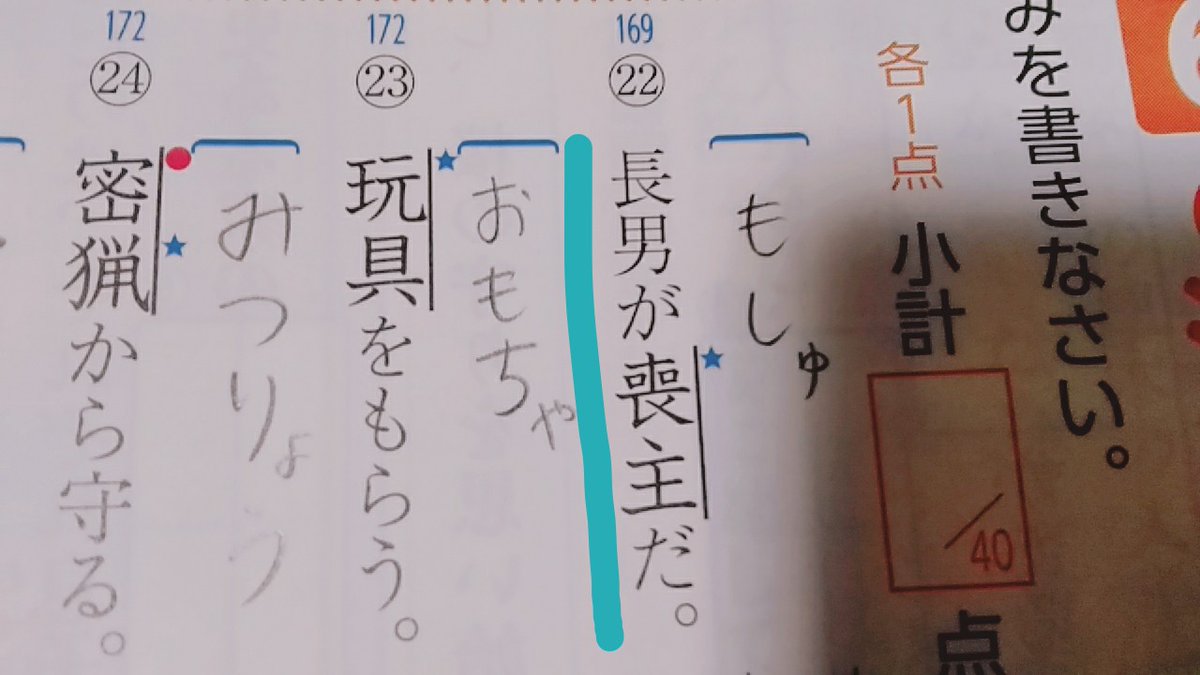 みを書きなさい。
各1点
小計
/40
点
169
㉒
もしゅ
長男が喪主だ。
172
㉓
おもちゃ
玩具をもらう。
172
㉔
みつりょう
密猟から守る。